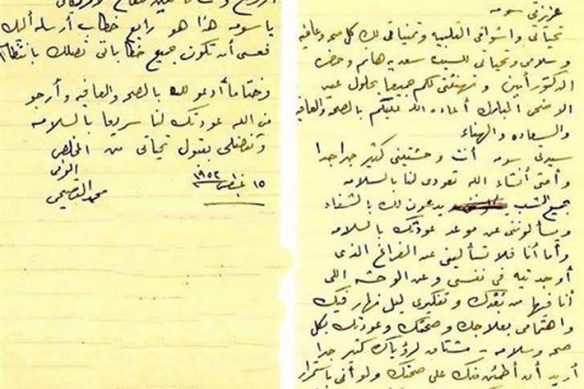 عزيزتى سومه
تحياتى واشواقى القلبيه وتمنياتى لك بكل صحه وعافيه
وسلامى وتحياتى للست سعديه هانم وحضرة
الدكتور أمين وتهنئتى لكم جميعا بحلول عيد
الاضحى المبارك أعاده الله عليكم بالصحه والعافيه
والسعاده والهناء
سيدتى سومه أنت وحشتينى كثير جدا جدا
وأتمنى انشاء الله تعودى لنا بالسلامه
جميع الشعب يدعون لك بالشفاء
ويسألوننى عن موعد عودتك بالسلامه
وأما أنا فلا تسألينى عن الفراغ الذى
أوجدتيه فى نفسى وعن الوحشه اللى
أنا فيها من بعدك وتفكيرى ليل نهار فيك
واهتمامى بعلاجك وصحتك وعودتك بكل
صحه وسلامه - مشتاق لرؤياك كثير جدا
أريد أن أطمئن منك على صحتك ولو أنى باستمرار
يا سومه هذا هو رابع خطاب أرسله اليك
فعسى أن تكون جميع خطاباتى تصلك بانتظام
وختاما أدعو لك بالصحه والعافيه وأرجو
من الله عودتك لنا سريعا بالسلامه
وتفضلى بقبول تحياتى من المخلص
الوفى
محمد القصبجى
١٥ أغسطس ١٩٥٢